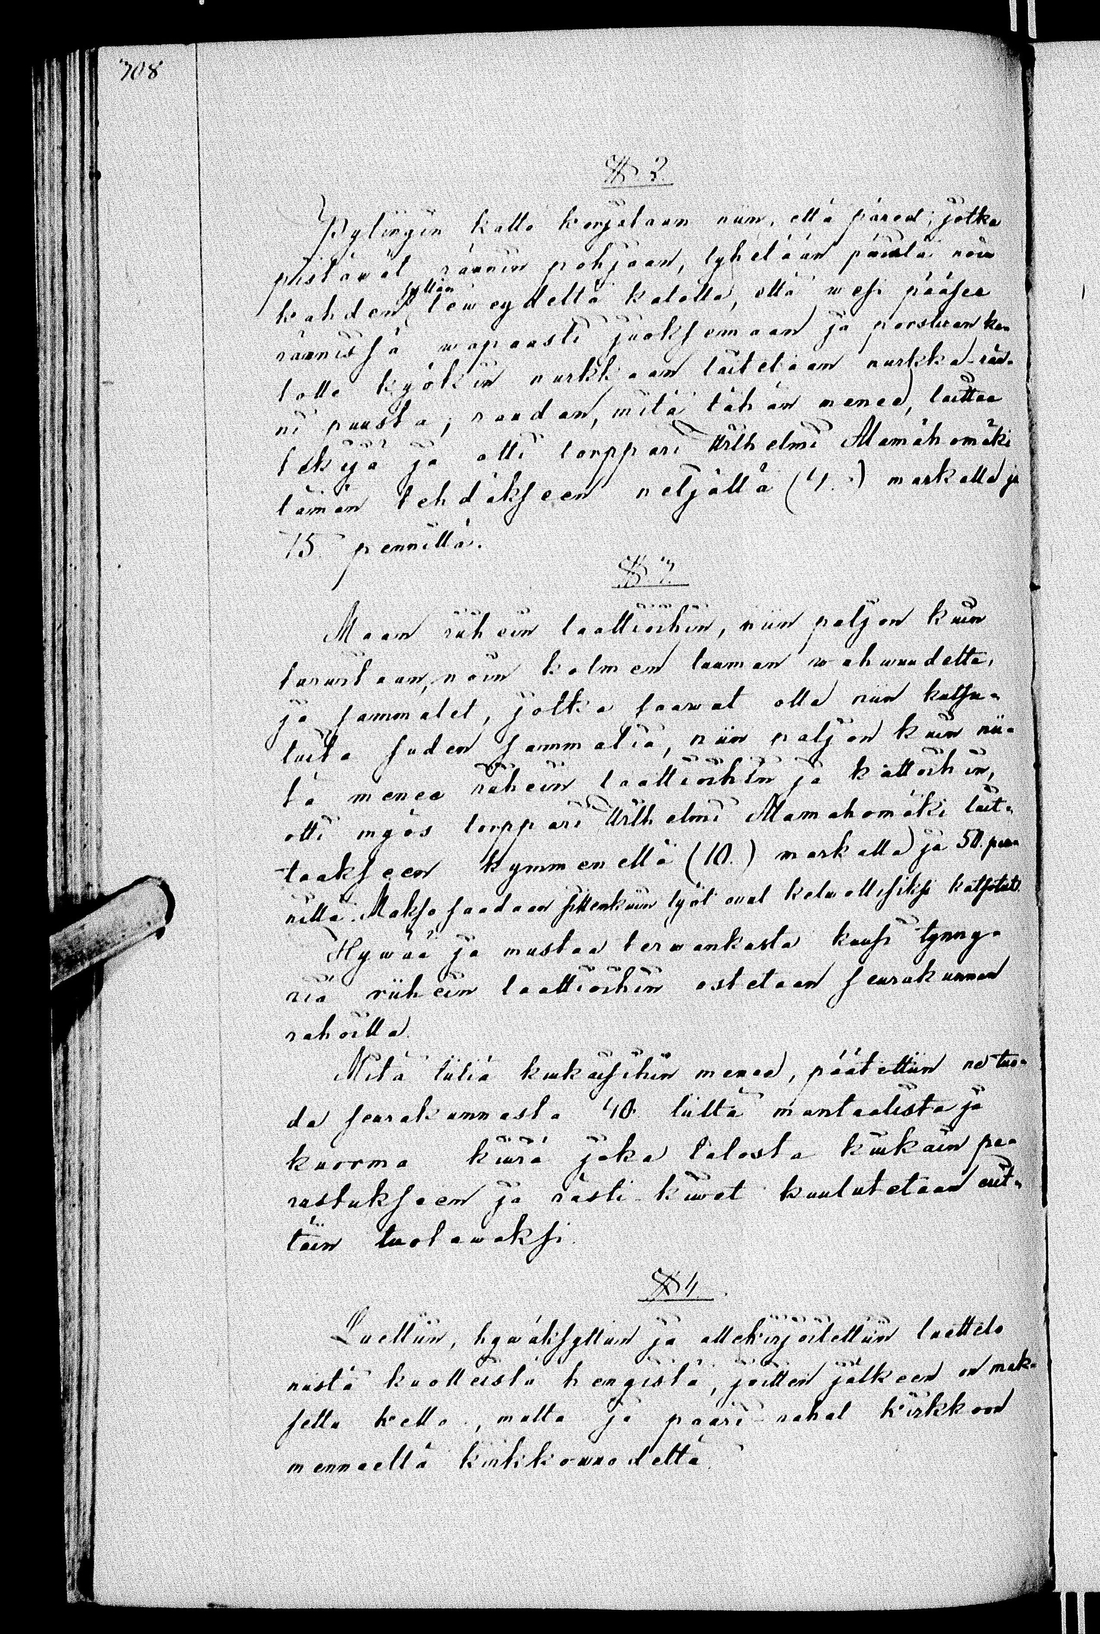 708
§ 2.
Pylingin katto korjataan niin, että päreet, jotka
pistäwät rännin pohjaan, lyhetään päästä noin
kahden syltän leweydeltä katolta, että wesi pääsee
rännissä wapaasti juoksemaan ja porstuan ka-
tolle kyökin nurkkaan laitetaan nurkka-rän-
ni puusta; raudan, mitä tähän menee, laittaa
tekijä ja otti torppari Wilhelmi Mamähomäki
tämän tehdäkseen neljällä (4.) markalla ja
75 pennillä.
§ 3.
Maan riihein laattioihin, niin paljon kuin
tarwitaan, noin kolmen tuuman wahwuudelta,
ja sammalet, jotka saawat olla niin kutsu-
tuita suden sammalia, niin paljon kuin nii-
tä menee riihein laattioihin ja kattoihin,
otti myös torppari Wilhelmi Mamahomäki lait-
taakseen kymmenellä (10.) markalla ja 50 pen-
nillä. Makso saadaan sittenkuin työt owat kelwollisiksi katsotut.
Hywää ja mustaa terwankasta kuusi tynny-
riä riihein laattioihin ostetaan seurakunnan
rahoilla.
Mitä tiiliä kiukaisihin menee, päätettiin ne tuo-
da seurakunnasta 40 tiiltä mantaalista ja
kuorma kiwiä joka talosta kiukain pe-
rustukseen ja rästi kiwet kuulutetaan eut-
täin tuotawaksi.
§ 4.
Luettiin, hywäksyttiin ja allekirjoitettiin luettelo
niistä kuolleista hengistä, joitten jälkeen on mak-
settu kello, multa ja paari-rahat kirkkoon
menneeltä kirkkowuodelta.